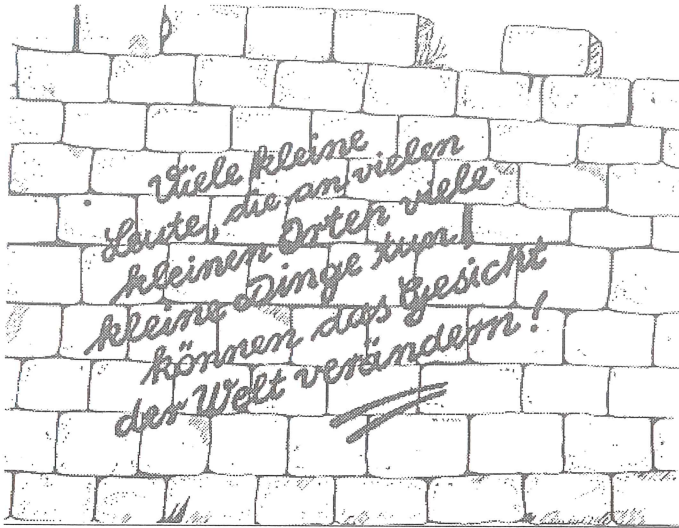 Viele kleine
Leute, die an vielen
kleinen Orten viele
kleine Dinge tun,
können das Gesicht
der Welt verändern!